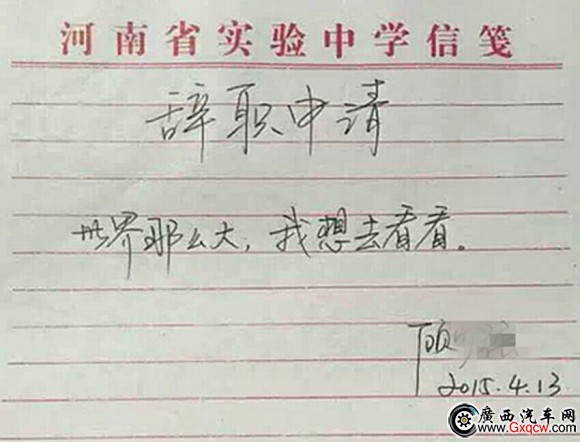 河南省实验中学信笺
辞职申请
世界那么大，我想去看看。
顾
2015.4.13
廣西汽车网
www.Gxqcw.com